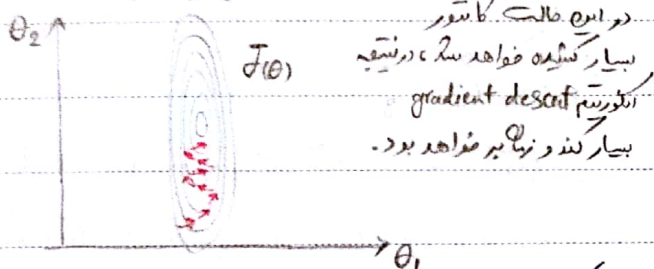 در این حالت کانتور
بسیار کشیده خواهد شد، در نتیجه
الگوریتم gradient descent
بسیار کند و زمان بر خواهد بود.
θ₂
J(θ)
θ₁